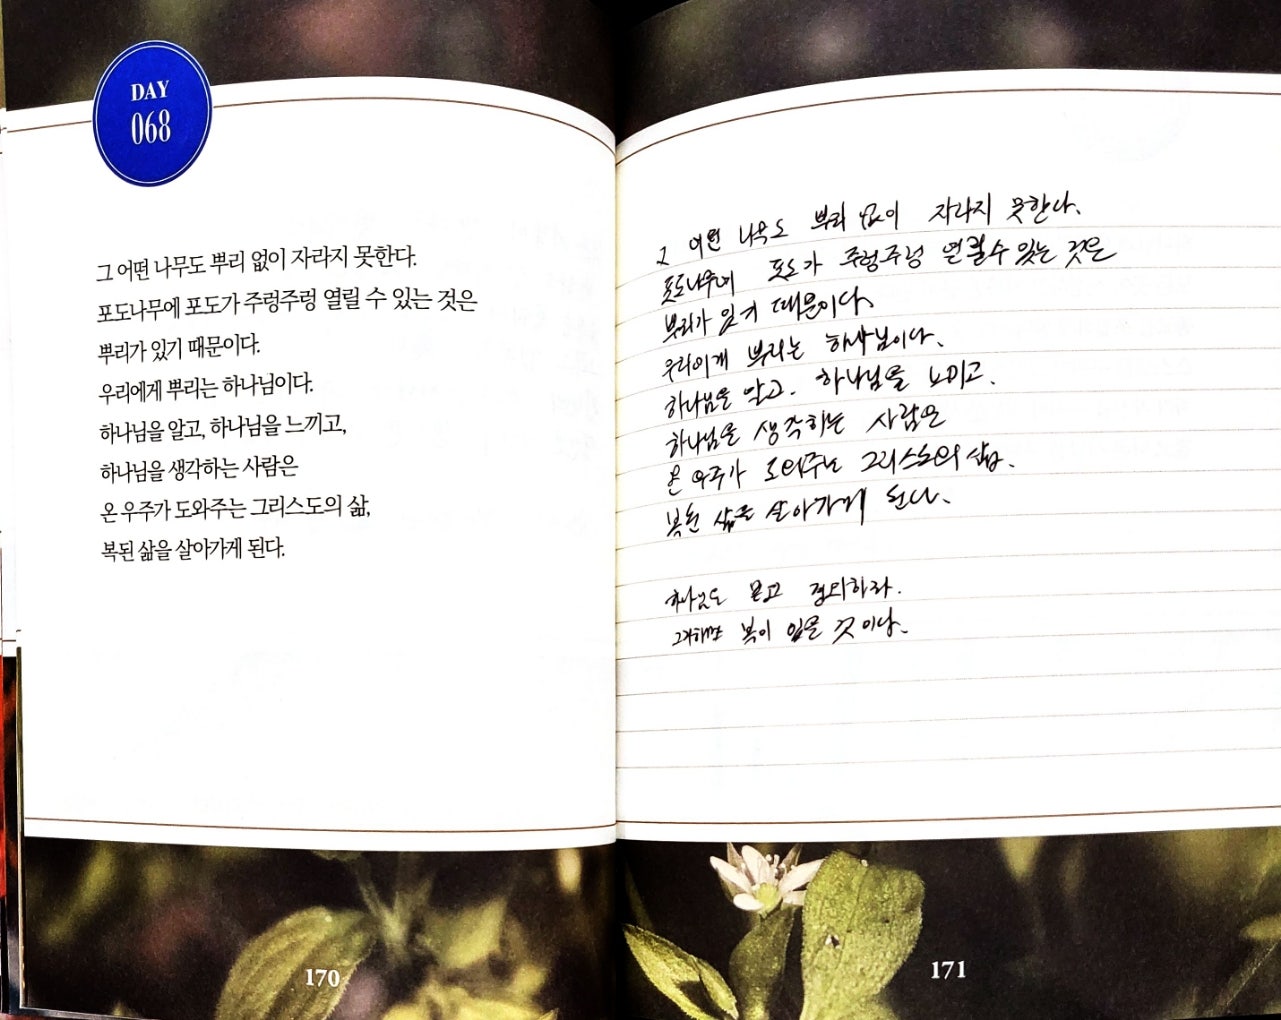 DAY
068
그 어떤 나무도 뿌리 없이 자라지 못한다.
포도나무에 포도가 주렁주렁 열릴 수 있는 것은
뿌리가 있기 때문이다.
우리에게 뿌리는 하나님이다.
하나님을 알고, 하나님을 느끼고,
하나님을 생각하는 사람은
온 우주가 도와주는 그리스도의 삶,
복된 삶을 살아가게 된다.
170
그 어떤 나무도 뿌리 없이 자라지 못한다.
포도나무에 포도가 주렁주렁 열릴수 있는 것은
뿌리가 있기 때문이다.
우리에게 뿌리는 하나님이다.
하나님을 알고. 하나님을 느끼고.
하나님을 생각하는 사람은
온 우주가 도와주는 그리스도의 삶.
복된 삶을 살아가게 된다.
믿고
복이 있을 것이다.
171